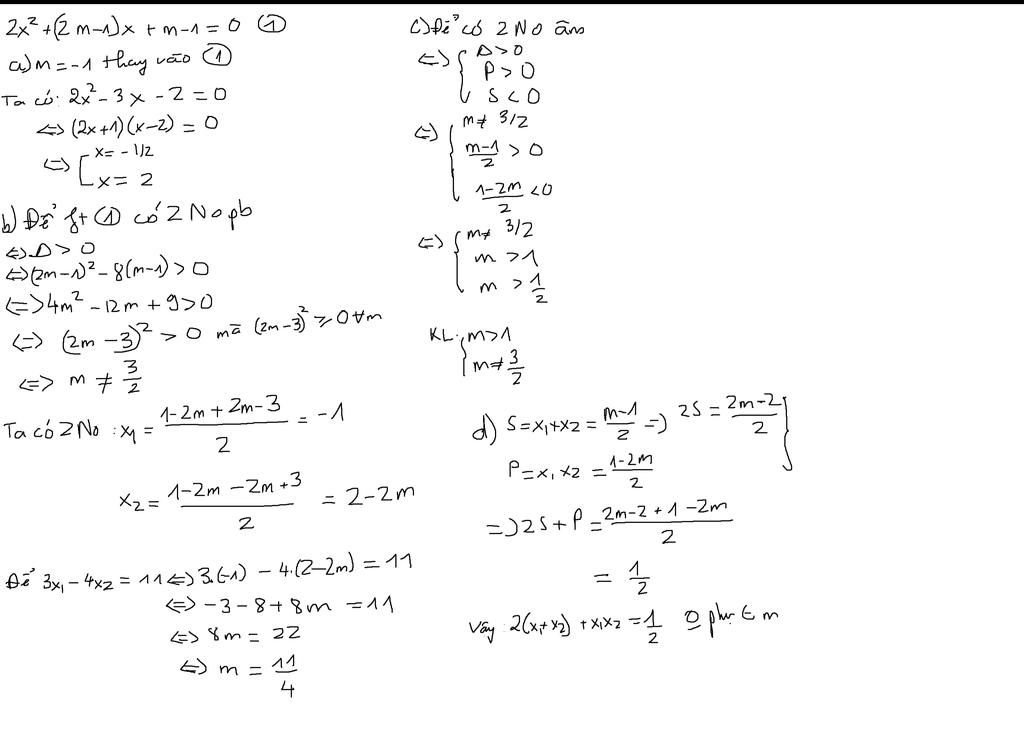 2x² + (2m-1)x + m-1 = 0 ①
a) m = -1 thay vào ①
Ta có: 2x² - 3x - 2 = 0
<=> (2x+1)(x-2) = 0
<=> [ x = -1/2
x = 2
b) Để ft ① có 2 No pb
<=> Δ > 0
<=> (2m-1)² - 8(m-1) > 0
<=> 4m² - 12m + 9 > 0
<=> (2m-3)² > 0 mà (2m-3)² ⩾ 0 ∀m
<=> m ≠ 3/2
Ta có 2 No : x₁ = (1-2m+2m-3)/2 = -1
x₂ = (1-2m-2m+3)/2 = 2-2m
Để 3x₁ - 4x₂ = 11 <=> 3.(-1) - 4.(2-2m) = 11
<=> -3-8+8m = 11
<=> 8m = 22
<=> m = 11/4
c) Để có 2 No âm
<=> { Δ > 0
P > 0
S < 0
<=> { m ≠ 3/2
(m-1)/2 > 0
(1-2m)/2 < 0
<=> { m ≠ 3/2
m > 1
m > 1/2
KL: { m > 1
m ≠ 3/2
d) S = x₁+x₂ = (m-1)/2 => 2S = (2m-2)/2 }
P = x₁x₂ = (1-2m)/2
=> 2S+P = (2m-2+1-2m)/2
= 1/2
Vậy 2(x₁+x₂) + x₁x₂ = 1/2 o phụ. ∈ m